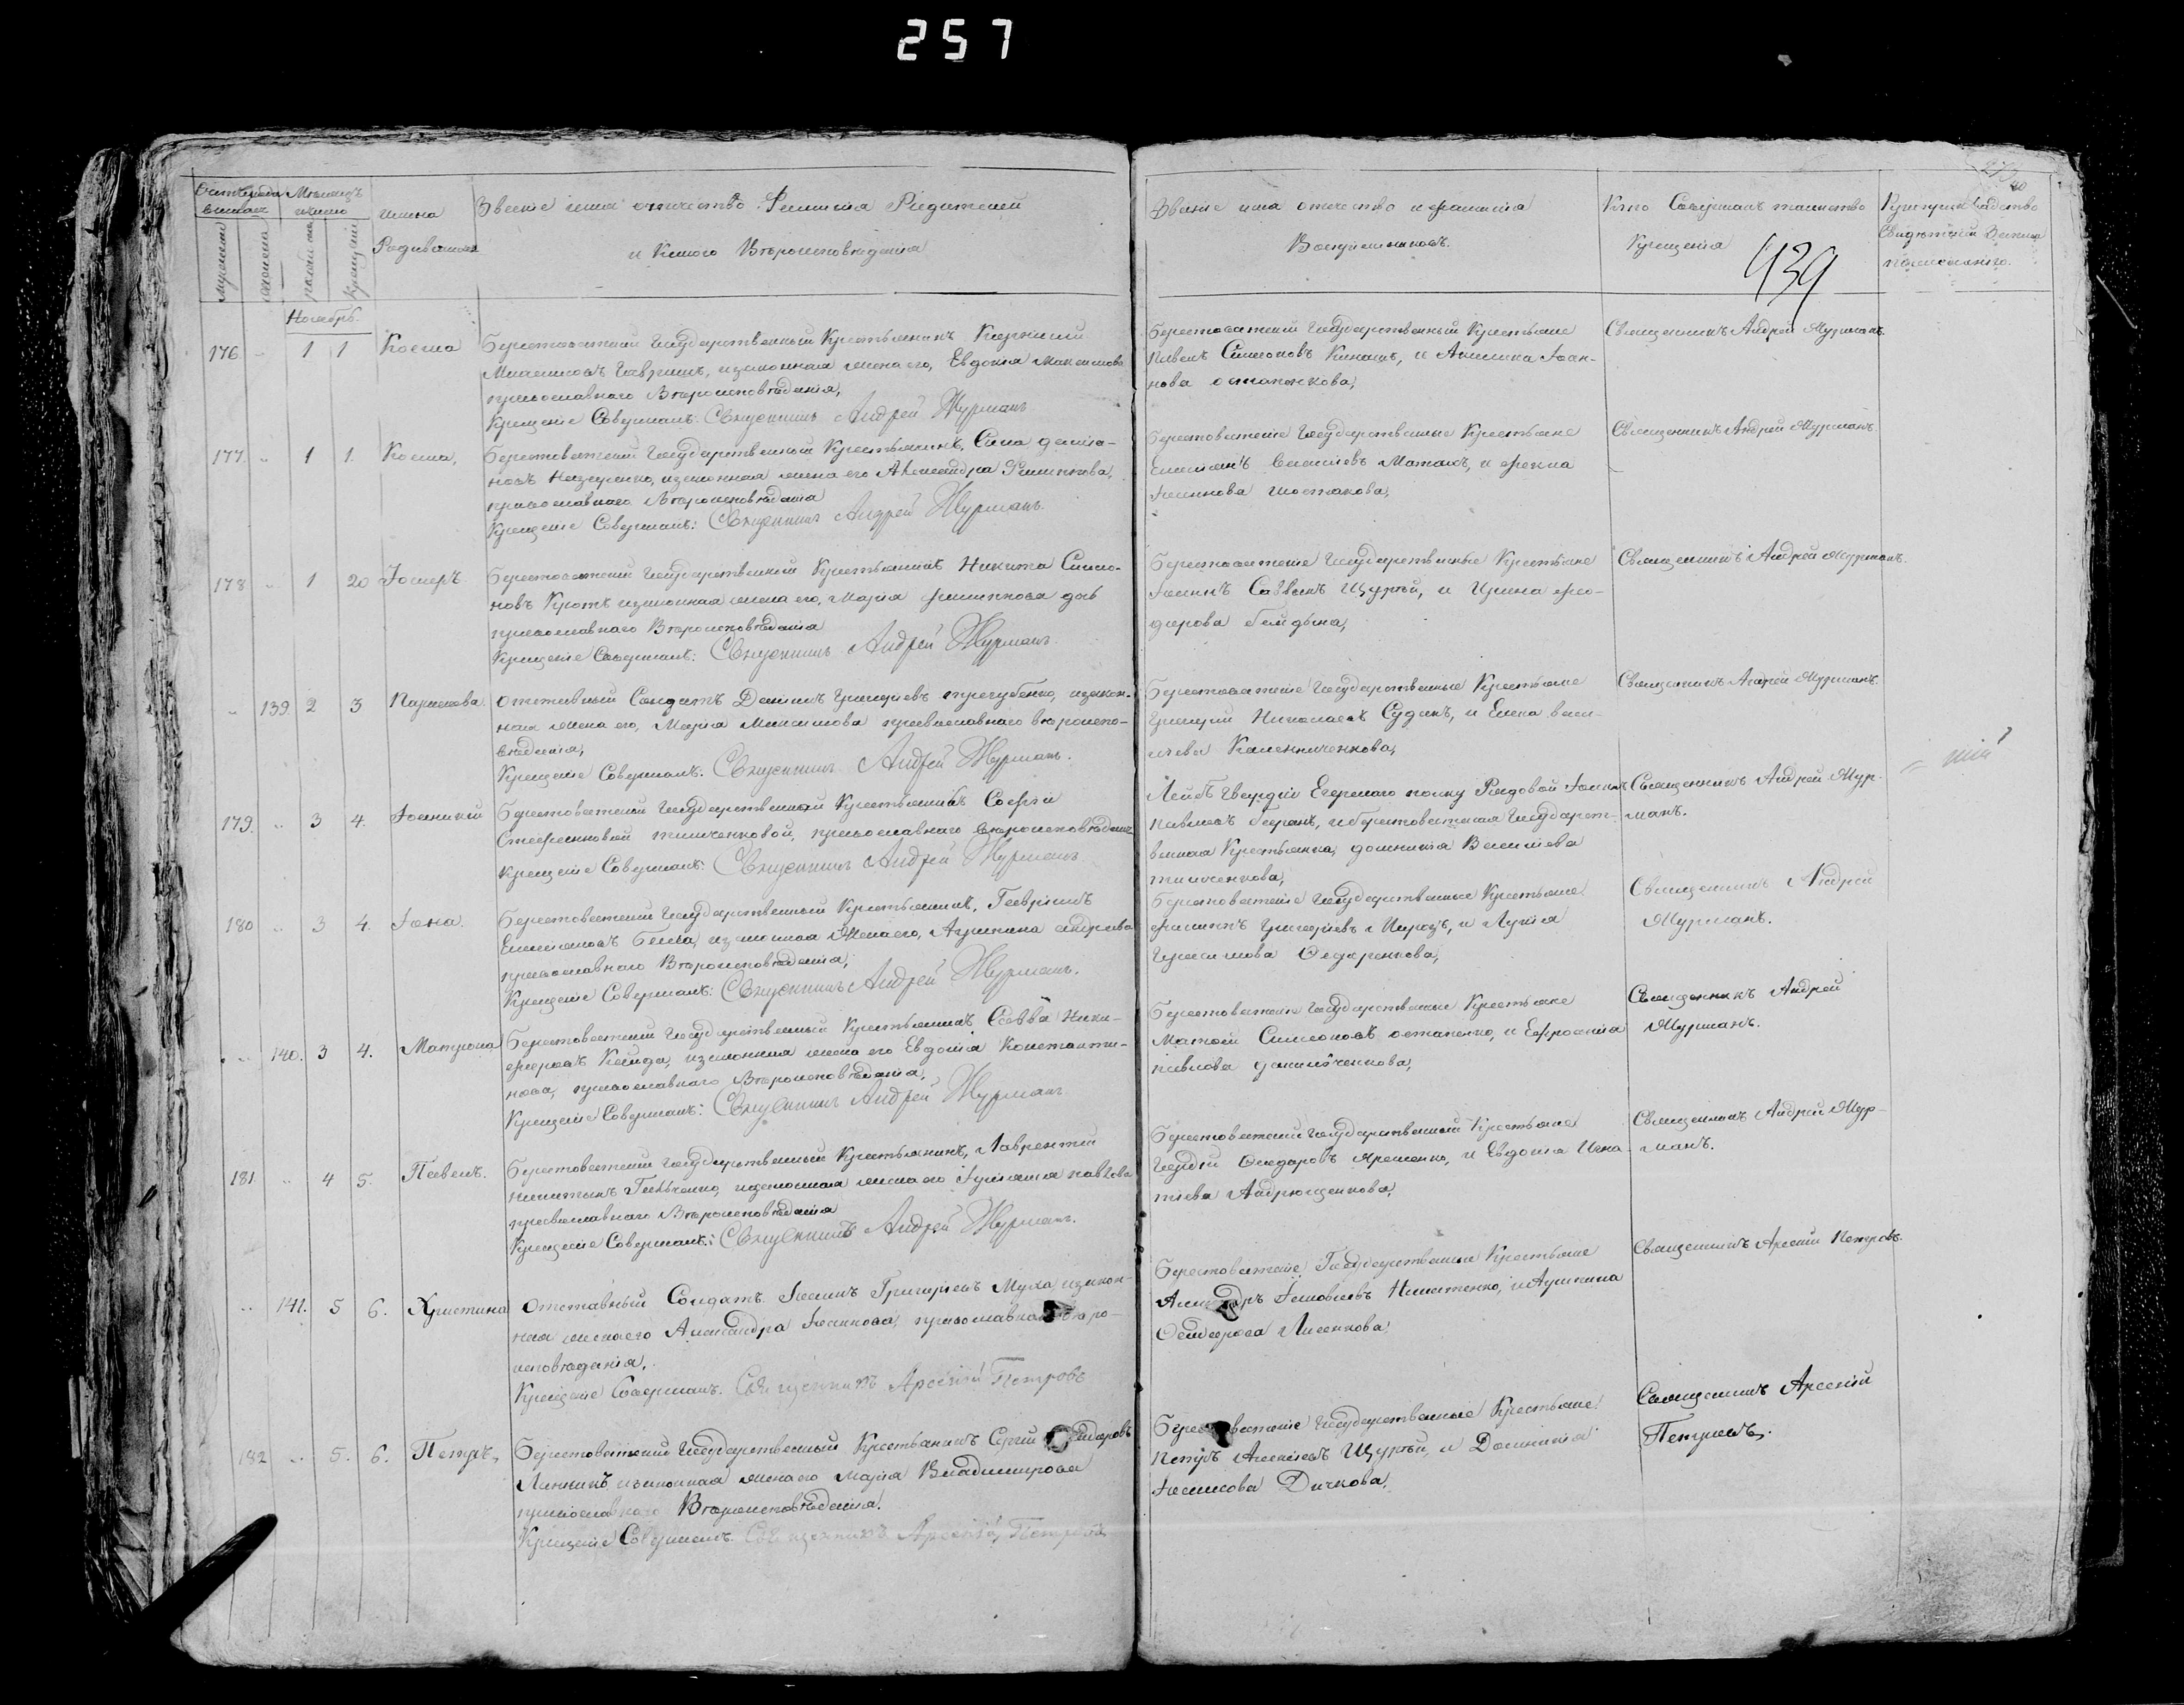 257
439
Счетъ родившихся
Мѣсяцъ и число
Имена Родившихся
Званіе имя отечество и Фамилія Родителей
и Какого Вѣроисповѣданія
Званіе имя отечество и фамилія
Воспріемниковъ.
Кто Совершалъ таинство
Крещенія
мужеска
женска
рожденія
Крещенія
Ноябрь.
176 „ 1 1 Косма
Берестоватскій Государственный Крестьянинъ Корнилій
Гавришъ, и законная жена его, Евдокія Максимова
православнаго Вѣроисповѣданія,
Крещеніе Совершалъ: Священникъ Андрей Журманъ
Берестоватскій Государственный Крестьяне
Павелъ Симеоновъ Кинашъ, и Акилина Іоан-
нова остапенкова,
Священникъ Андрей Журманъ.
177. „ 1 1. Косма,
Берестоватскій Государственный Крестьянинъ, Сила даміа-
новъ Назаренко, и законная жена его Александра Филиппова,
православнаго Вѣроисповѣданія
Крещеніе Совершалъ: Священникъ Андрей Журманъ.
Берестоватскіе Государственные Крестьяне
и Фекла
Іоаннова шостакова,
Священникъ Андрей Журманъ.
178 „ 1 20 Іосифъ
Берестоватскій Государственный Крестьянинъ Никита Симео-
новъ Кротъ и законная жена его, Марія филиппова
православнаго Вѣроисповѣданія
Крещеніе Совершалъ: Священникъ Андрей Журманъ
Берестоватскіе Государственные Крестьяне
Іоаннъ Саввинъ Щуртій, и Ирина фео-
дорова
Священникъ Андрей Журманъ.
„ 139. 2 3 Параскева.
Отставный Солдатъ Даніилъ Григорьевъ трегубенко, и закон-
ная жена его, Марія Максимова православнаго вѣроиспо-
вѣданія,
Крещеніе Совершалъ: Священникъ Андрей Журманъ.
Берестоватскіе Государственные Крестьяне
Григорій Николаевъ Судакъ, и Елена васи-
льева Каленниченкова,
Священникъ Андрей Журманъ.
179. „ 3 4. Іоанникій
Берестоватской Государственной Крестьянки Софіи
Стефановой тимченковой, православнаго вѣроисповѣданія
Крещеніе Совершалъ: Священникъ Андрей Журманъ
Лейбъ Гвардіи Егерскаго полку Рядовой Іоаннъ
Павловъ и берестоватская Государст-
венная Крестьянка, домникія Васильева
тимченкова,
Священникъ Андрей Жур-
манъ.
180 „ 3 4. Іона.
Берестоватскій Государственный Крестьянинъ, Гавріилъ
Емельяновъ и законная Жена его, Агрипина андреева
православнаго Вѣроисповѣданія,
Крещеніе Совершалъ: Священникъ Андрей Журманъ.
Берестоватскіе Государственные Крестьяне
филиппъ Григорьевъ Мирозъ, и Лукія
Герасимова Сидоренкова,
Священникъ Андрей
Журманъ.
„ 140. 3 4. Матрона
Берестоватскій Государственный Крестьянинъ, Савва Ники-
форовъ и законная жена его Евдокія Константи-
нова, православнаго Вѣроисповѣданія,
Крещеніе Совершалъ: Священникъ Андрей Журманъ
Берестоватскіе Государственные Крестьяне
Матвій Симеоновъ остапенко, и Ефросинія
павлова данильченкова,
Священникъ Андрей
Журманъ.
181 „ 4 5. Павелъ.
Берестоватскій Государственный Крестьянинъ, Лаврентій
никитинъ и законная жена его Іуліанія павлова
православнаго Вѣроисповѣданія
Крещеніе Совершалъ: Священникъ Андрей Журманъ.
Берестоватскій Государственный Крестьяне
Яременко, и Евдокія Игна-
тіева Андрющенкова,
Священникъ Андрей Жур-
манъ.
„ 141. 5 6. Христина
Отставный Солдатъ Іоаннъ Григорьевъ Муха и закон-
ная жена его Александра Іоаннова, православнаго вѣро-
исповѣданія,
Крещеніе Совершалъ. Священникъ Арсеній Петровъ
Берестоватскіе Государственные Крестьяне
Александръ Іаковлевъ Никитенко, и Агрипина
Лисенкова,
Священникъ Арсеній Петровъ.
182 „ 5. 6. Петръ,
Берестоватскій Государственный Крестьянинъ Сергій
Линникъ и законная жена его Марія Владимирова
православнаго Вѣроисповѣданія.
Крещеніе Совершалъ. Священникъ Арсеній Петровъ
Берестоватскіе Государственные Крестьяне
Петръ Алексѣевъ Щуртій, и Домникія
Дичкова,
Священникъ Арсеній
Петровъ.